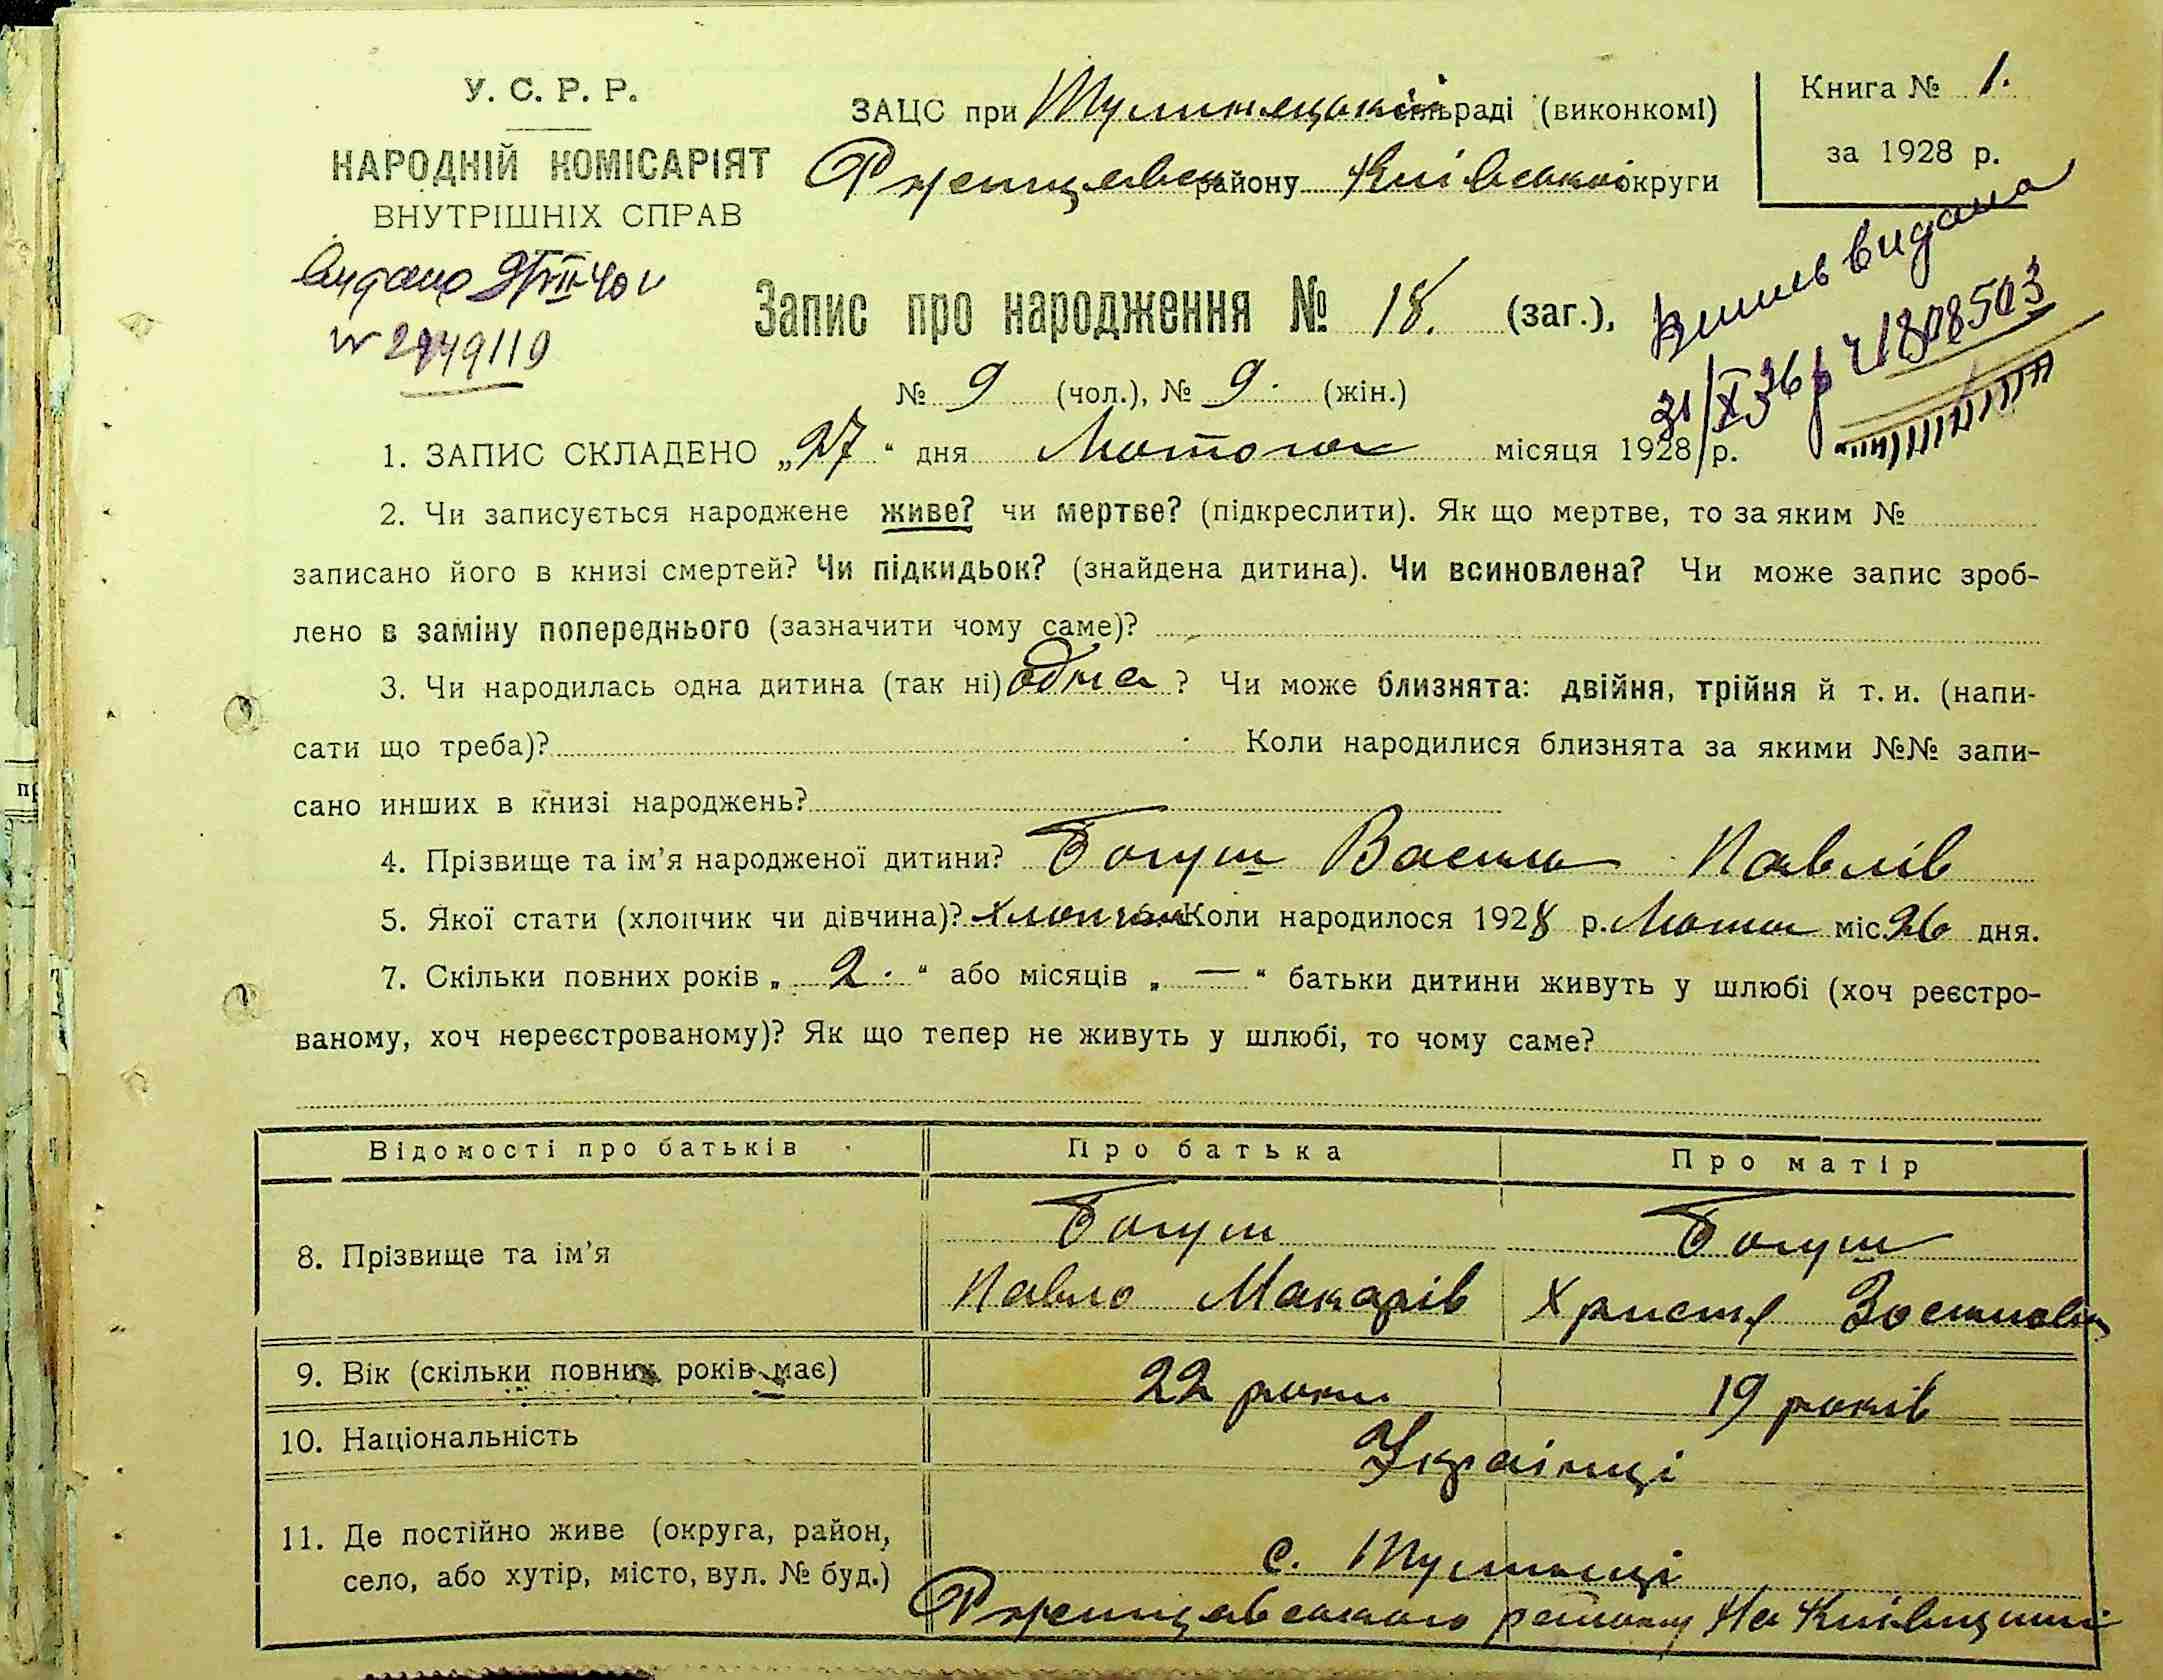 У. С. Р. Р.
НАРОДНІЙ КОМІСАРІЯТ
ВНУТРІШНІХ СПРАВ
ЗАЦС при Тулинецькій сільраді (виконкомі)
Ржищевськ району Київської округи
Книга № 1.
за 1928 р.
видано 9/VII-40
№ 2949119
Запис про народження № 18. (заг.),
№ 9 (чол.), № 9. (жін.)
видана
31/X 36 р 1808503
1. ЗАПИС СКЛАДЕНО „27“ дня Лютого місяця 1928 р.
2. Чи записується народжене живе? чи мертве? (підкреслити). Як що мертве, то за яким №
записано його в книзі смертей? Чи підкидьок? (знайдена дитина). Чи всиновлена? Чи може запис зроб-
лено в заміну попереднього (зазначити чому саме)?
3. Чи народилась одна дитина (так ні) одна ? Чи може близнята: двійня, трійня й т. и. (напи-
сати що треба)? Коли народилися близнята за якими №№ запи-
сано инших в книзі народжень?
4. Прізвище та ім’я народженої дитини? Богуш Василь Павлів
5. Якої стати (хлопчик чи дівчина)? хлопчик Коли народилося 1928 р. Лютого міс. 26 дня.
7. Скільки повних років „ 2. “ або місяців „ — “ батьки дитини живуть у шлюбі (хоч реєстро-
ваному, хоч нереєстрованому)? Як що тепер не живуть у шлюбі, то чому саме?
Відомості про батьків Про батька Про матір
8. Прізвище та ім’я
Богуш Богуш
Павло Макарів Христя
9. Вік (скільки повних років має) 22 роки 19 років
10. Національність Українці
11. Де постійно живе (округа, район,
село, або хутір, місто, вул. № буд.)
с. Тулинці
Ржищевського району на Київщині